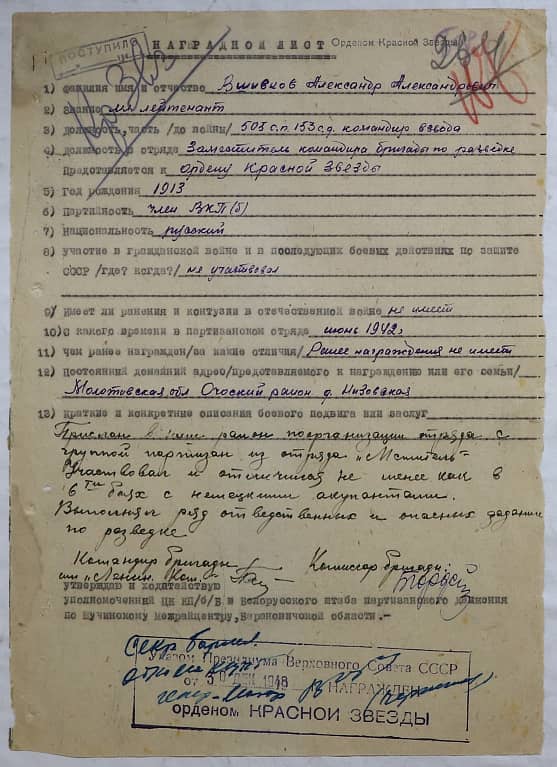 ПОСТУПИЛО
НАГРАДНОЙ ЛИСТ Орденом Красной Звезды
1) фамилия имя и отчество Вшивков Александр Александрович
2) Звание мл лейтенант
3) Должность, часть /до войны/ 503 с.п. 153 с.д. командир взвода
4) должность в отряде Заместитель командира бригады по разведке
Представляется к ордену Красной Звезды
5) Год рождения 1913
6) Партийность член ВКП(б)
7) Национальность русский
8) участие в гражданской войне и в последующих боевых действиях по защите
СССР /где? когда?/ не участвовал
9) Имеет ли ранения и контузии в отечественной войне не имеет
10) С какого времени в партизанском отряде июнь 1942г
11) чем ранее награжден/за какие отличия/ Ранее награждения не имеет
12) Постоянный домашний адрес/представляемого к награждению или его семьи/
Молотовская обл Очоский район д.
13) Краткие и конкретные описания боевого подвига или заслуг
Прислан в район по организации отряда с
группой партизан из отряда "Мститель"
Участвовал и отличился не менее как в
6ти боях с немецкими акупантами.
Выполнял ряд ответственных и опасных задании
по разведке
Командир бригады Комиссар бригады:
им "Ленин. Ком."
утверждаю и ходатействую
уполномоченный ЦК КП/б/Б и Белорусского штаба партизанского движения
по Щучинскому межрайцентру, Барановичской области.-
Указом Президиума Верховного Совета СССР
от 30 ДЕК 1948 НАГРАЖДЕН
орденом КРАСНОЙ ЗВЕЗДЫ